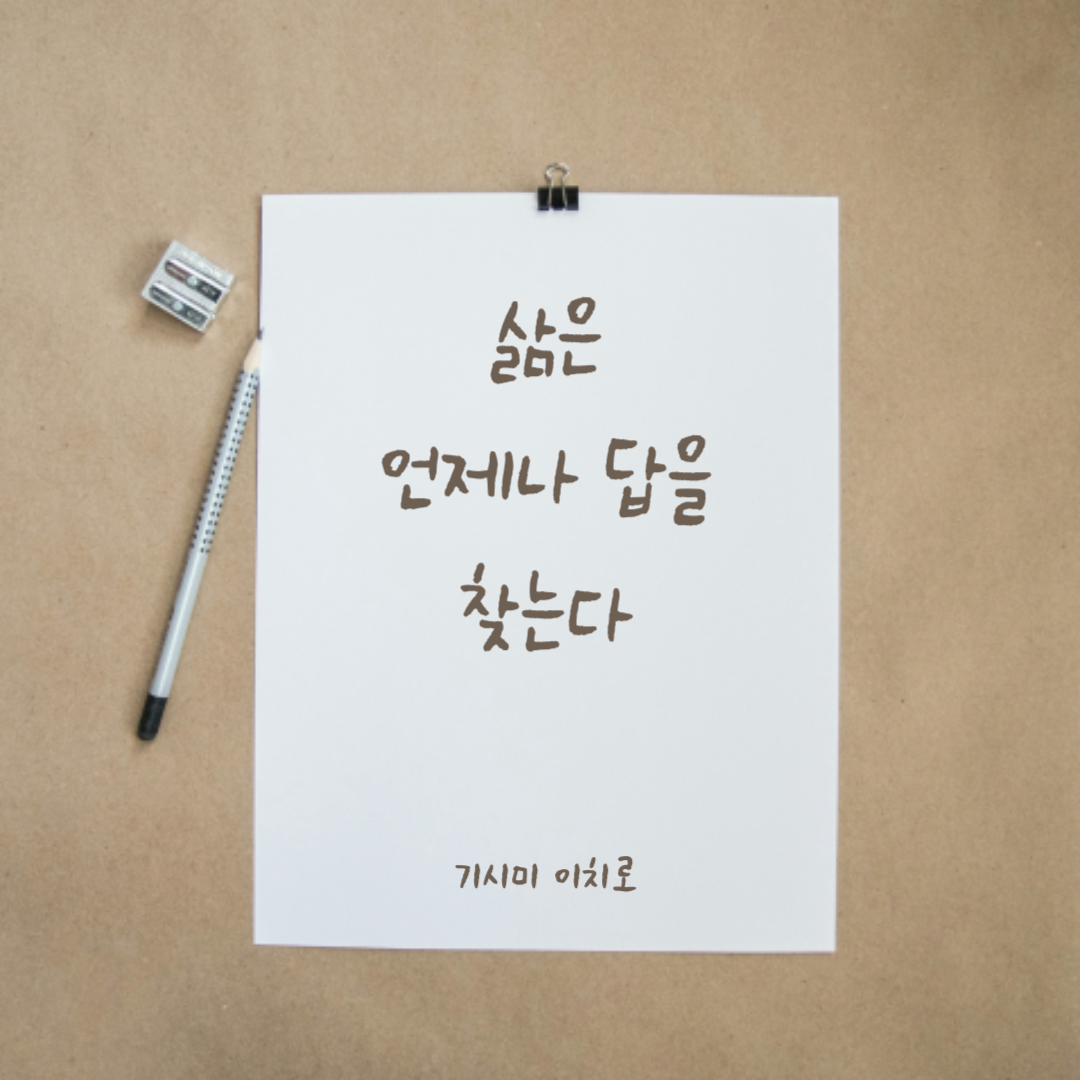 삶은
언제나 답을
찾는다
기시미 이치로